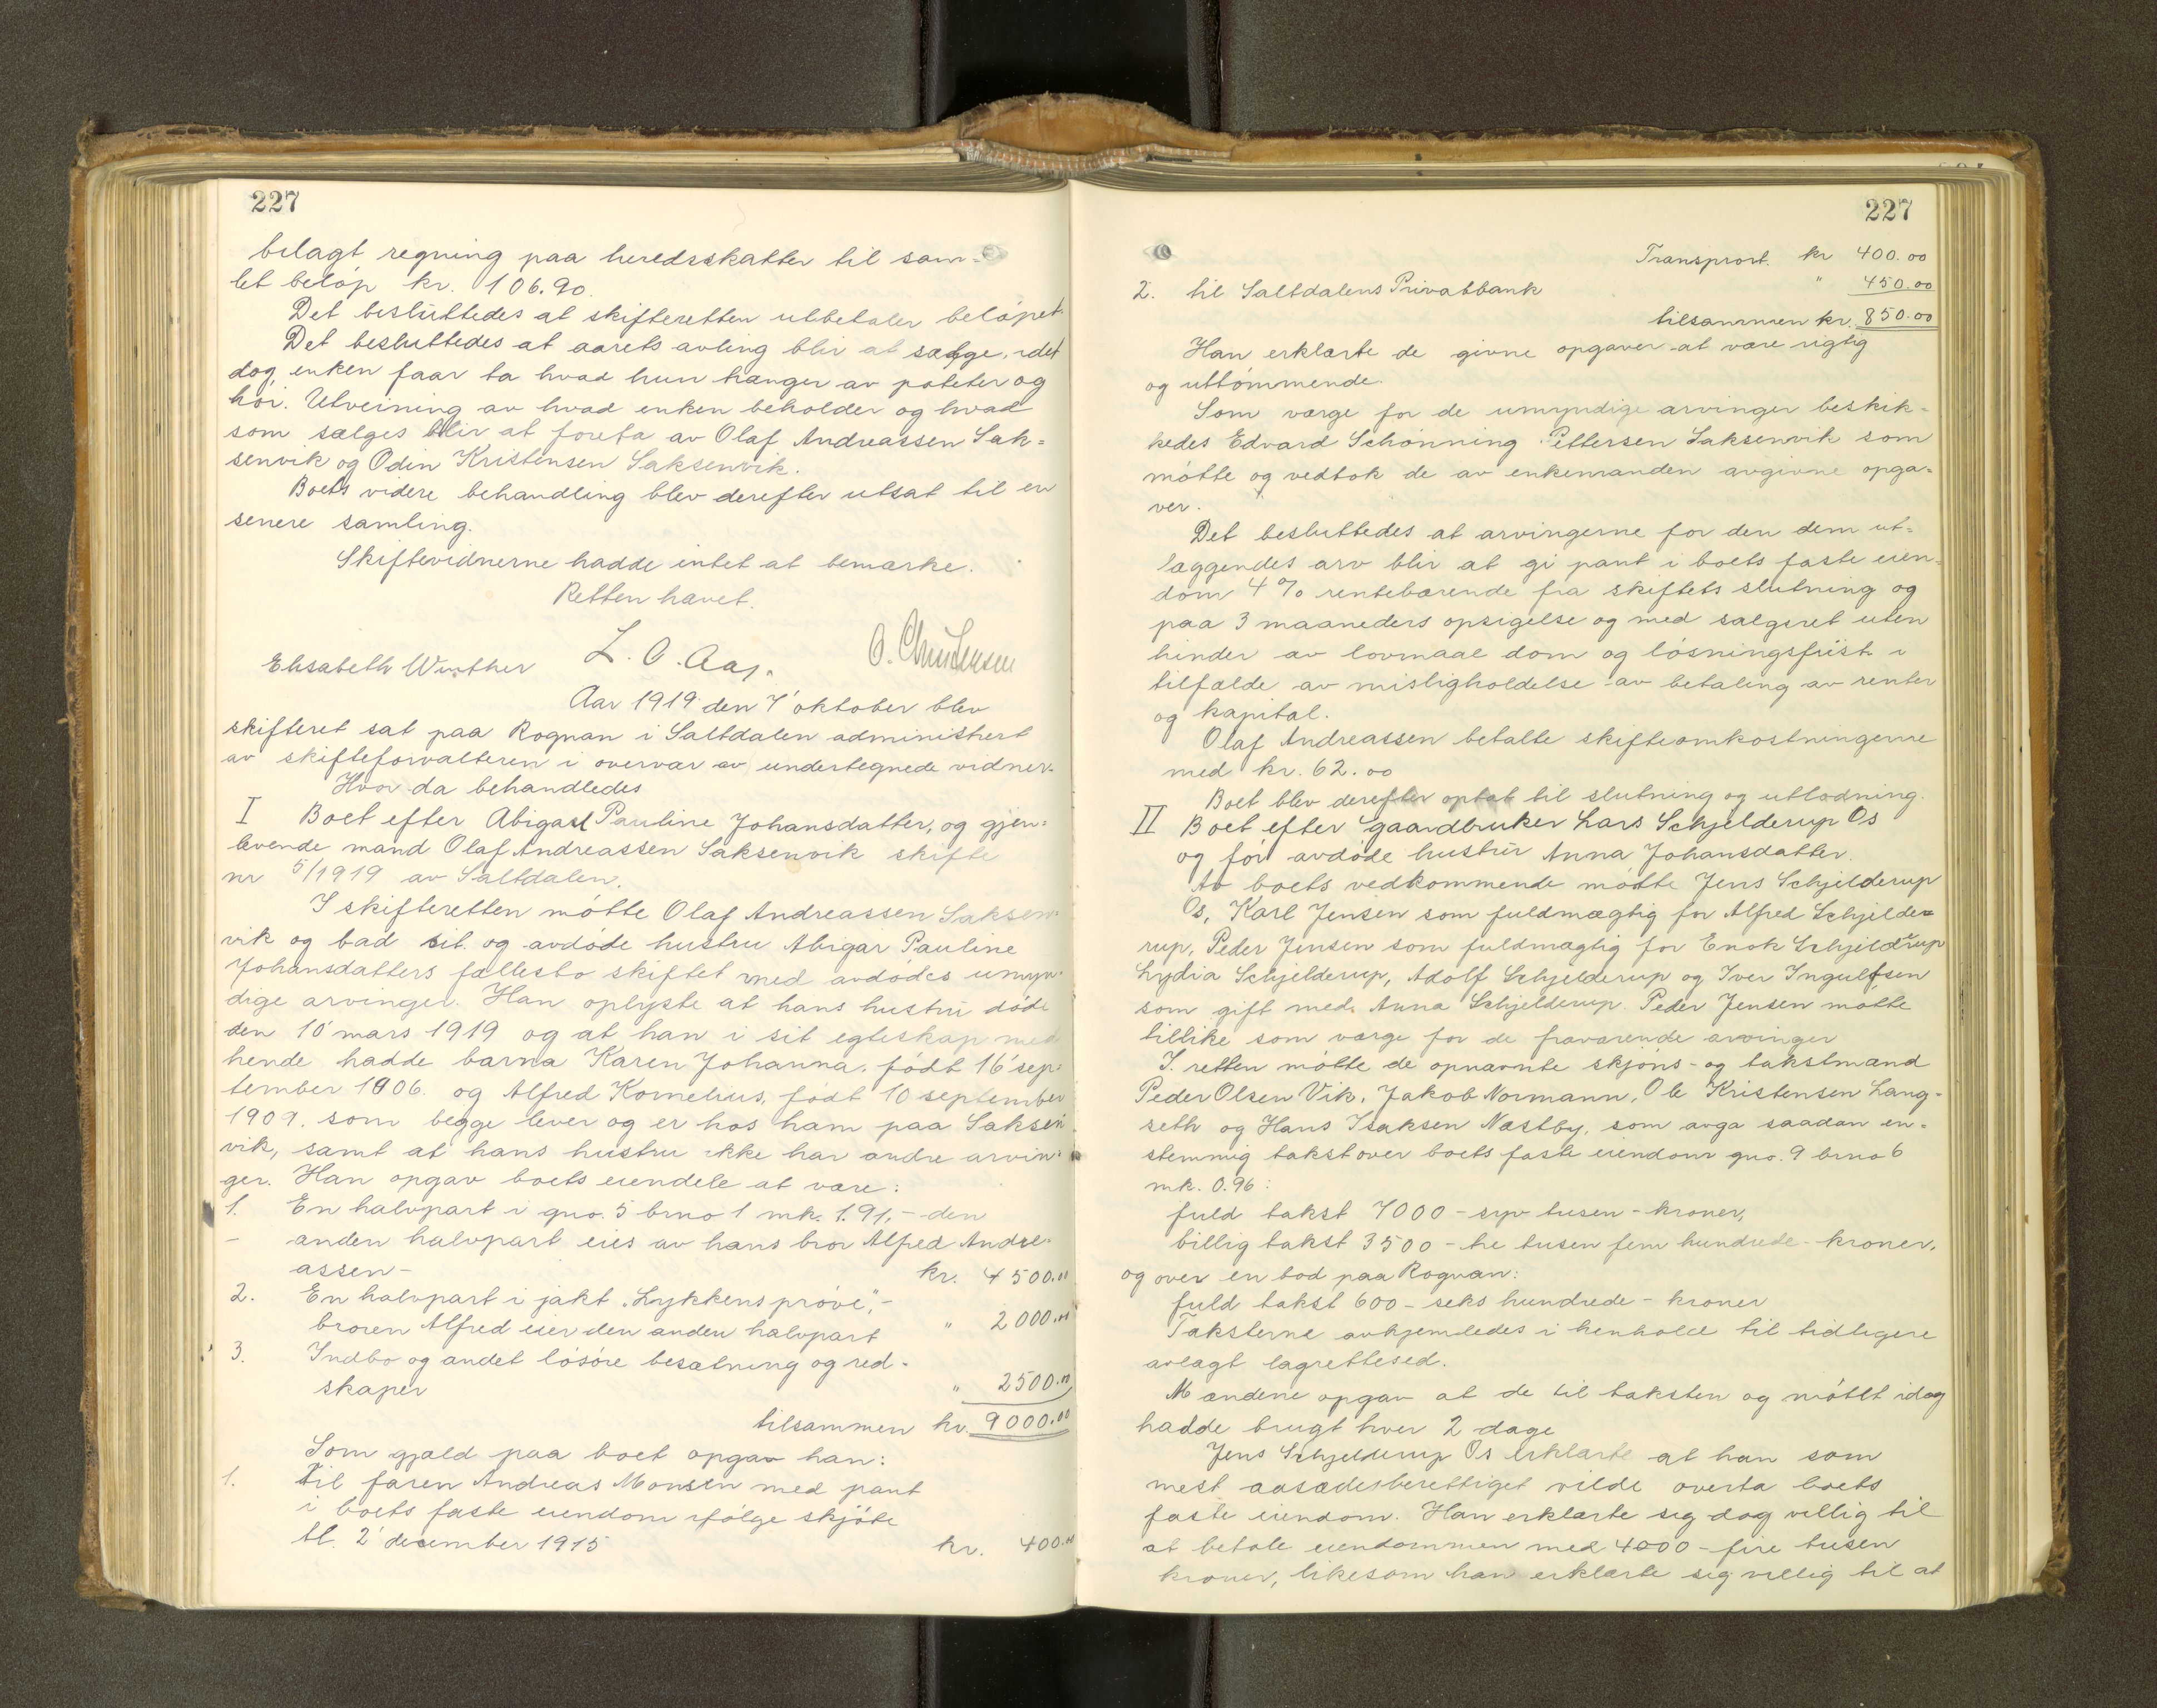 227
belagt regning paa heredsskatter til sam-
let beløp kr. 106.90.
Det besluttedes at skifteretten utbetaler beløpet.
Det besluttedes at aarets avling blir at sælge, idet
dog enken faar ta hvad hun trænger av poteter og
høi. Utveining av hvad enken beholder og hvad
som sælges blir at foreta av Olaf Andreassen Sak=
senvik og Odin Kristensen Saksenvik.
Boets videre behandling blev derefter utsat til en
senere samling.
Skiftevidnerne hadde intet at bemærke.
Retten hævet.
Elisabeth Winther L. O. Aas. O. Christensen
Aar 1919 den 7' oktober blev
skifteret sat paa Rognan i Saltdalen administrert
av skifteforvalteren i overvær av undertegnede vidner.
Hvor da behandledes
I Boet efter Abigael Pauline Johansdatter, og gjen=
levende mand Olaf Andreassen Saksenvik skifte
nr 5/1919 av Saltdalen.
I skifteretten møtte Olaf Andreassen Saksen=
vik og bad sit og avdøde hustru Abigar Pauline
Johansdatters fællesbo skiftet med avdødes umyn=
dige arvinger. Han oplyste at hans hustru døde
den 10' mars 1919 og at han i sit egteskap med
hende hadde barna Karen Johanna, født 16' sep=
tember 1906. og Alfred Kornelius, født 10 september
1909. som begge lever og er hos ham paa Saksen
vik, samt at hans hustru ikke har andre arvin=
ger. Han opgav boets eiendele at være:
1. En halvpart i gno. 5 brno 1 mk. 1.91, - den
- anden halvpart eies av hans bror Alfred Andre-
assen - kr. 4500.00
2. En halvpart i jakt "Lykkens prøve", -
broren Alfred eier den anden halvpart " 2000.00
3. Indbo og andet løsøre besætning og red-
skaper " 2500.00
tilsammen kr. 9000.00
Som gjæld paa boet opgav han:
1. Til faren Andreas Monsen med pant
i boets faste eiendom ifølge skjøte
tl. 2' december 1915 kr. 400.00
227
Transport. kr 400.00
2. til Saltdalens Privatbank " 450.00
tilsammen kr. 850.00
Han erklærte de givne opgaver at være rigtig
og uttømmende.
Som værge for de umyndige arvinger beskik-
kedes Edvard Schønning Pettersen Saksenvik som
møtte og vedtok de av enkemanden avgivne opga=
ver.
Det besluttedes at arvingerne for den dem ut=
læggendes arv blir at gi pant i boets faste eien=
dom 4% rentebærende fra skiftets slutning og
paa 3 maaneders opsigelse og med salgsret uten
hinder av lovmaal dom og løsningsfrist i
tilfælde av misligholdelse av betaling av renter
og kapital.
Olaf Andreassen betalte skifteomkostningerne
med kr. 62.00
Boet blev derefter optat til slutning og utlodning.
II Boet efter gaardbruker Lars Schjelderup Os
og før avdøde hustru Anna Johansdatter.
Av boets vedkommende møtte Jens Schjelderup
Os, Karl Jensen som fuldmægtig for Alfred Schjelde=
rup, Peder Jensen som fuldmægtig for Enok Schjelderup
Lydia Schjelderup, Adolf Schjelderup og Iver Ingulfsen
som gift med Anna Schjelderup. Peder Jensen møtte
tillike som værge for de fraværende arvinger
I. retten møtte de opnævnte skjøns- og takstmænd
Peder Olsen Vik, Jakob Normann, Ole Kristensen Lang-
seth og Hans Isaksen Næstby, som avga saadan en-
stemmig takst over boets faste eiendom gno. 9 brno 6
mk. 0.96:
fuld takst 7000 - syv tusen - kroner,
billig takst 3500 - tre tusen fem hundrede - kroner,
og over en bod paa Rognan:
fuld takst 600 - seks hundrede - kroner
Taksterne avhjemledes i henhold til tidligere
avlagt lagrettesed.
Mændene opgav at de til taksten og møtet idag
hadde brugt hver 2 dage
Jens Schjelderup Os erklærte at han som
mest aasædesberettiget vilde overta boets
faste eiendom. Han erklærte sig dog villig til
at betale eiendommen med 4000 - fire tusen
kroner, likesom han erklærte sig villig til at